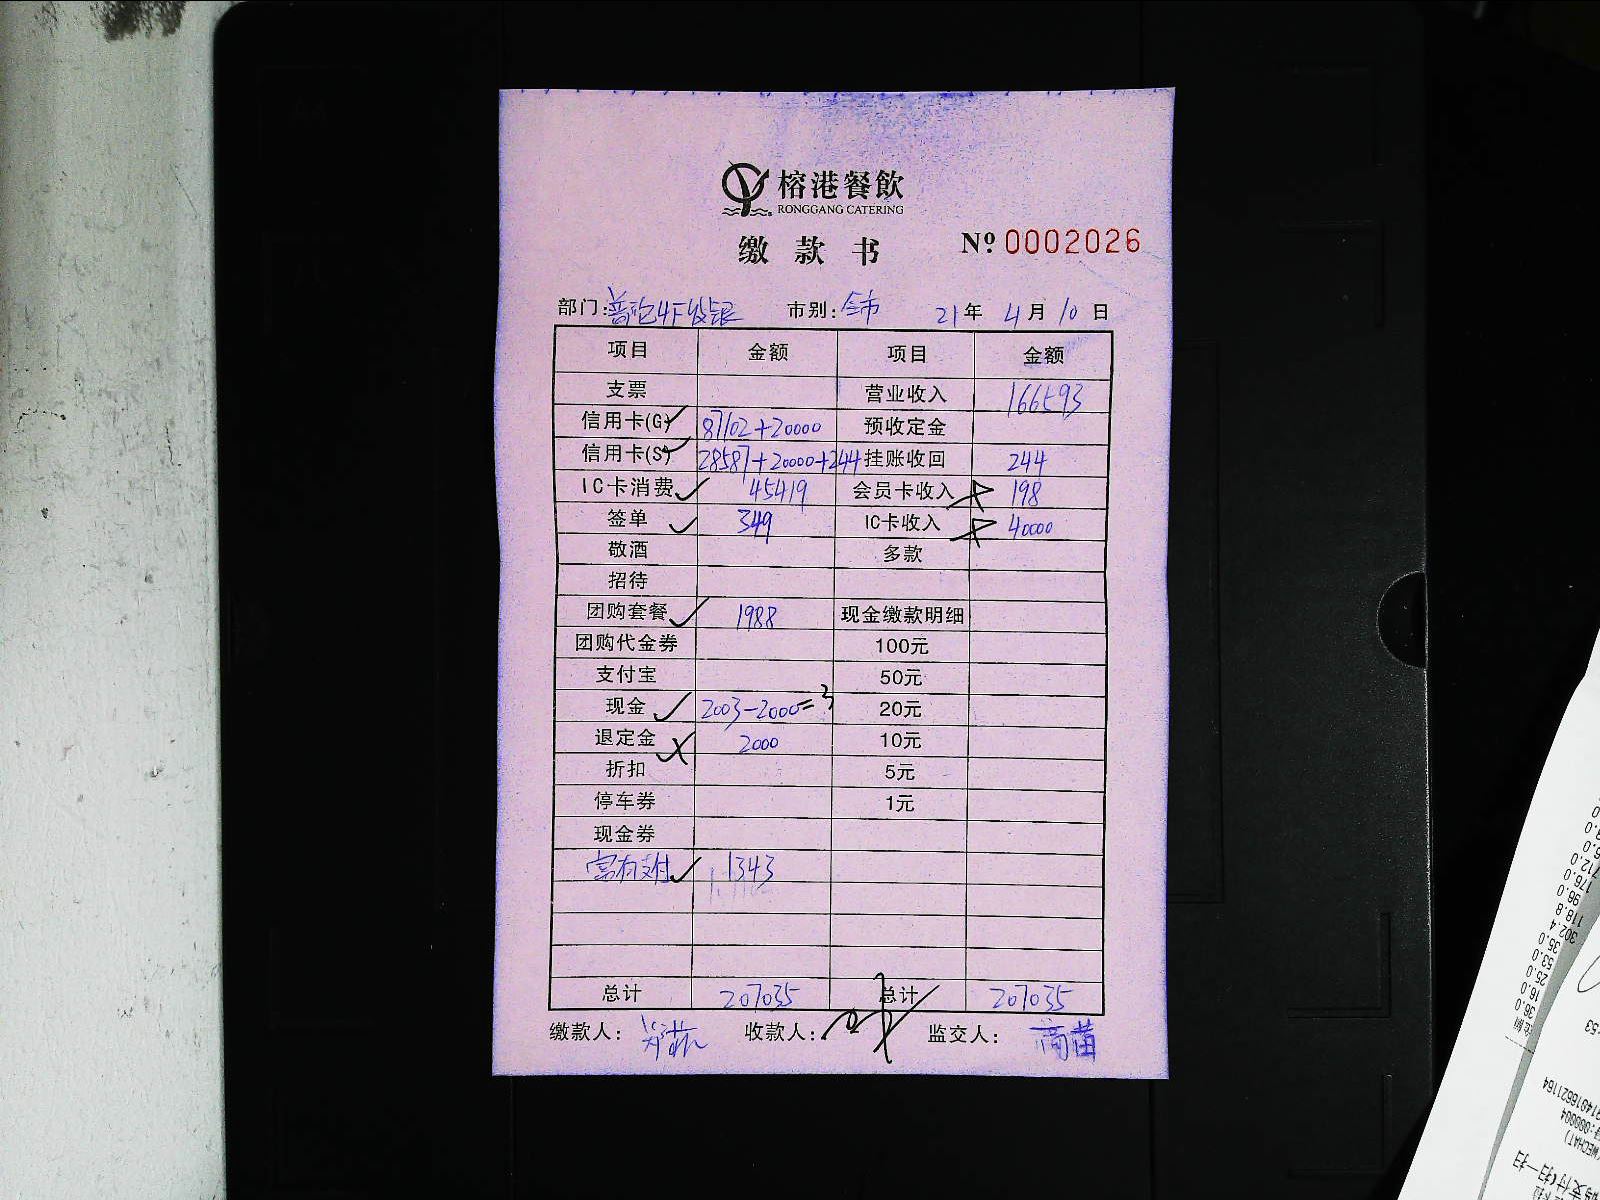 榕港餐飲
RONGGANG CATERING
缴 款 书 Nº 0002026
部门: 普陀4F 市别: 全市 21年 4月 10日
项目 金额 项目 金额
支票 营业收入 166593
信用卡(G) 87102+20000 预收定金
信用卡(S) 28587+20000+244 挂账收回 244
IC卡消费 45419 会员卡收入 198
签单 349 IC卡收入 40000
敬酒 多款
招待
团购套餐 1988 现金缴款明细
团购代金券 100元
支付宝 50元
现金 2003-2000=3 20元
退定金 2000 10元
折扣 5元
停车券 1元
现金券
富有支付 1343
总计 207035 总计 207035
缴款人: 收款人: 监交人:
712.0
176.0
96.0
118.8
302.4
35.0
53.0
25.0
16.0
36.0
金额
:53